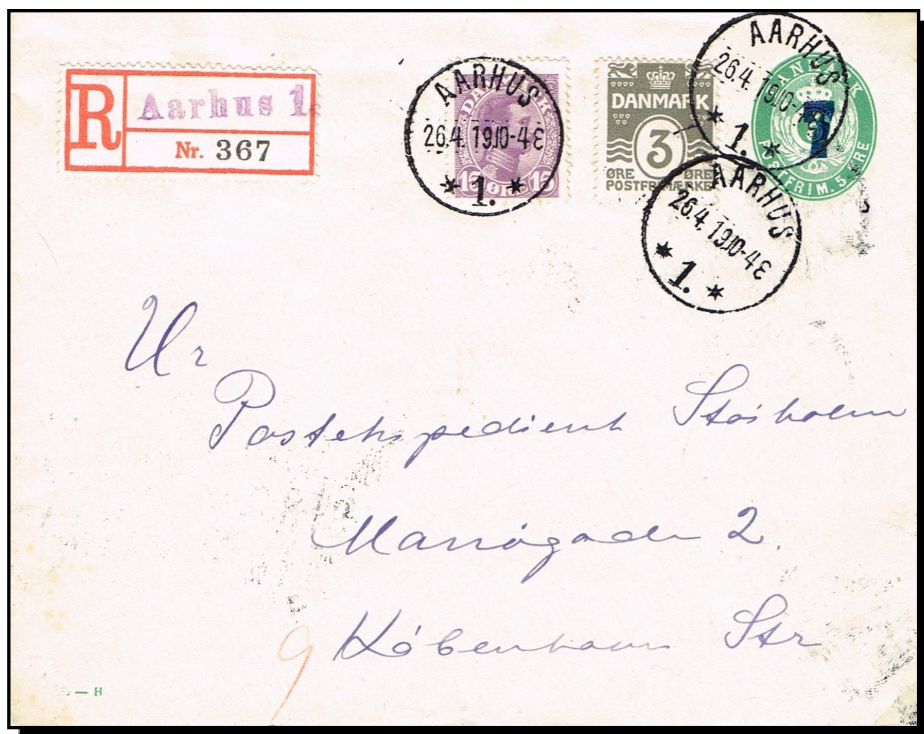 R
Aarhus 1.
Nr. 367
AARHUS
26.4. 19.10-4E
1.
15 ØRE 15
DANMARK
3
ØRE ØRE
POSTFRIMÆRKE
AARHUS
26.4. 19.10-4E
1.
7
POSTFRIM. 5. ØRE
AARHUS
26.4. 19.10-4E
1.
Hr
Postekspedient
2.
København Str
9
— H